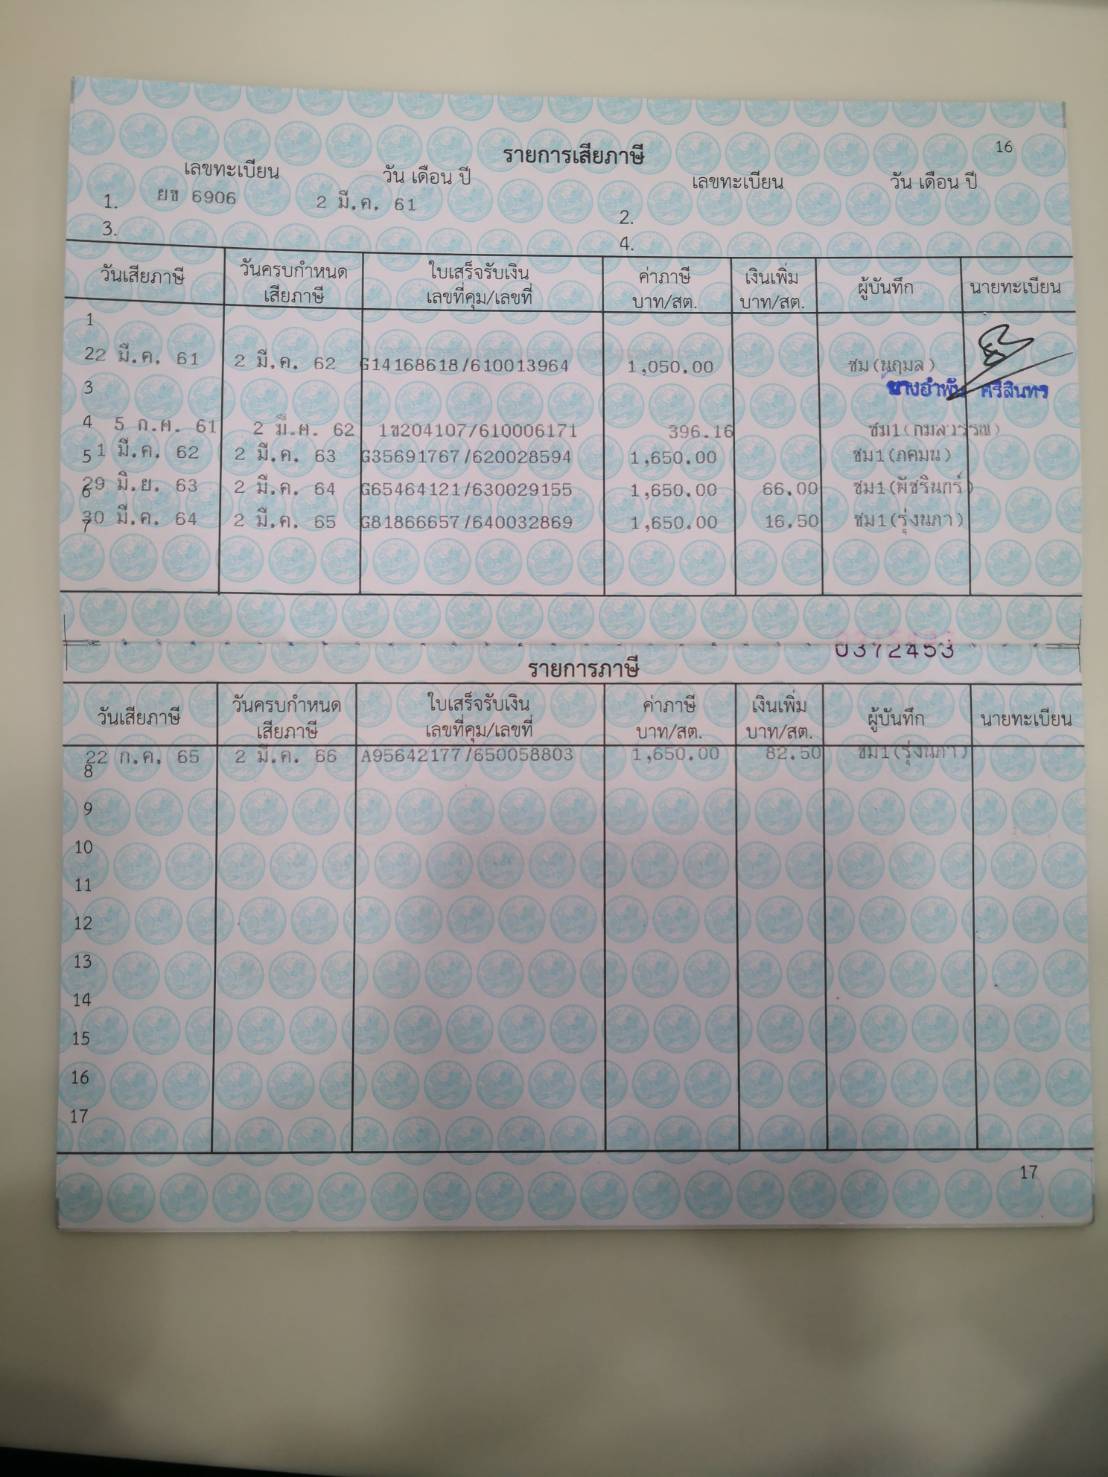 รายการเสียภาษี 16
เลขทะเบียน วัน เดือน ปี เลขทะเบียน วัน เดือน ปี
1. ยข 6906 2 มี.ค. 61 2.
3. 4.
วันเสียภาษี วันครบกำหนด ใบเสร็จรับเงิน ค่าภาษี เงินเพิ่ม ผู้บันทึก นายทะเบียน
เสียภาษี เลขที่คุม/เลขที่ บาท/สต. บาท/สต.
1
22 มี.ค. 61 2 มี.ค. 62 G14168618/610013964 1,050.00 ชม(นฤมล)
3 นางอำพัน ศรีสินทร
4 5 ก.ค. 61 2 มี.ค. 62 1ข204107/610006171 396.16 ชม1(กมลวรรณ)
5 1 มี.ค. 62 2 มี.ค. 63 G35691767/620028594 1,650.00 ชม1(ภคมน)
6 29 มิ.ย. 63 2 มี.ค. 64 G65464121/630029155 1,650.00 66.00 ชม1(พัชรินทร์)
7 30 มี.ค. 64 2 มี.ค. 65 G81866657/640032869 1,650.00 16.50 ชม1(รุ่งนภา)
0372453
รายการภาษี
วันเสียภาษี วันครบกำหนด ใบเสร็จรับเงิน ค่าภาษี เงินเพิ่ม ผู้บันทึก นายทะเบียน
เสียภาษี เลขที่คุม/เลขที่ บาท/สต. บาท/สต.
8 22 ก.ค. 65 2 มี.ค. 66 A95642177/650058803 1,650.00 82.50 ชม1(รุ่งนภา)
9
10
11
12
13
14
15
16
17
17